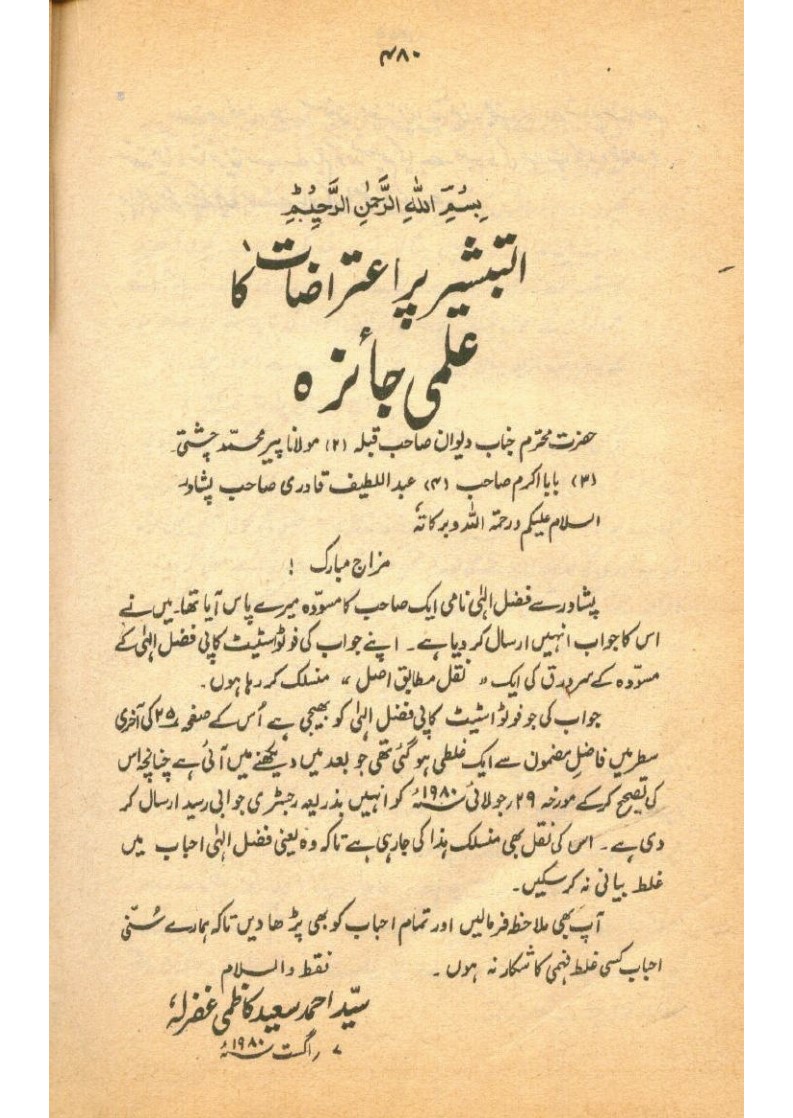 ۴۸۰
بِسْمِ اللهِ الرَّحْمٰنِ الرَّحِيْمِ
التبشیر پر اعتراضات کا
علمی جائزہ
حضرت محترم جناب دیوان صاحب قبلہ (۲) مولانا پیر محمد چشتی۔
(۳) بابا اکرم صاحب (۴) عبداللطیف قادری صاحب پشاور
السلام علیکم ورحمۃ اللہ وبرکاتہٗ
مزاج مبارک !
پشاور سے فضل الٰہی نامی ایک صاحب کا مسوّدہ میرے پاس آیا تھا۔ میں نے
اس کا جواب انہیں ارسال کر دیا ہے۔ اپنے جواب کی فوٹو اسٹیٹ کاپی فضل الٰہی کے
مسوّدہ کے سرورق کی ایک " نقل مطابق اصل " منسلک کر رہا ہوں۔
جواب کی جو فوٹو اسٹیٹ کاپی فضل الٰہی کو بھیجی ہے اُس کے صفحہ ۲۵ کی آخری
سطر میں فاضل مضمون سے ایک غلطی ہو گئی تھی جو بعد میں دیکھنے میں آئی ہے چنانچہ اس
کی تصحیح کر کے مورخہ ۲۹ جولائی ۱۹۸۰ء کو انہیں بذریعہ رجسٹری جوابی رسید ارسال کر
دی ہے۔ اس کی نقل بھی منسلک ہذا کی جارہی ہے تاکہ وہ یعنی فضل الٰہی احباب میں
غلط بیانی نہ کر سکیں۔
آپ بھی ملاحظہ فرمالیں اور تمام احباب کو بھی پڑھا دیں تاکہ ہمارے سُنّی
احباب کسی غلط فہمی کا شکار نہ ہوں۔
فقط والسلام
سیّد احمد سعید کاظمی غفرلہٗ
۷ اگست ۱۹۸۰ء